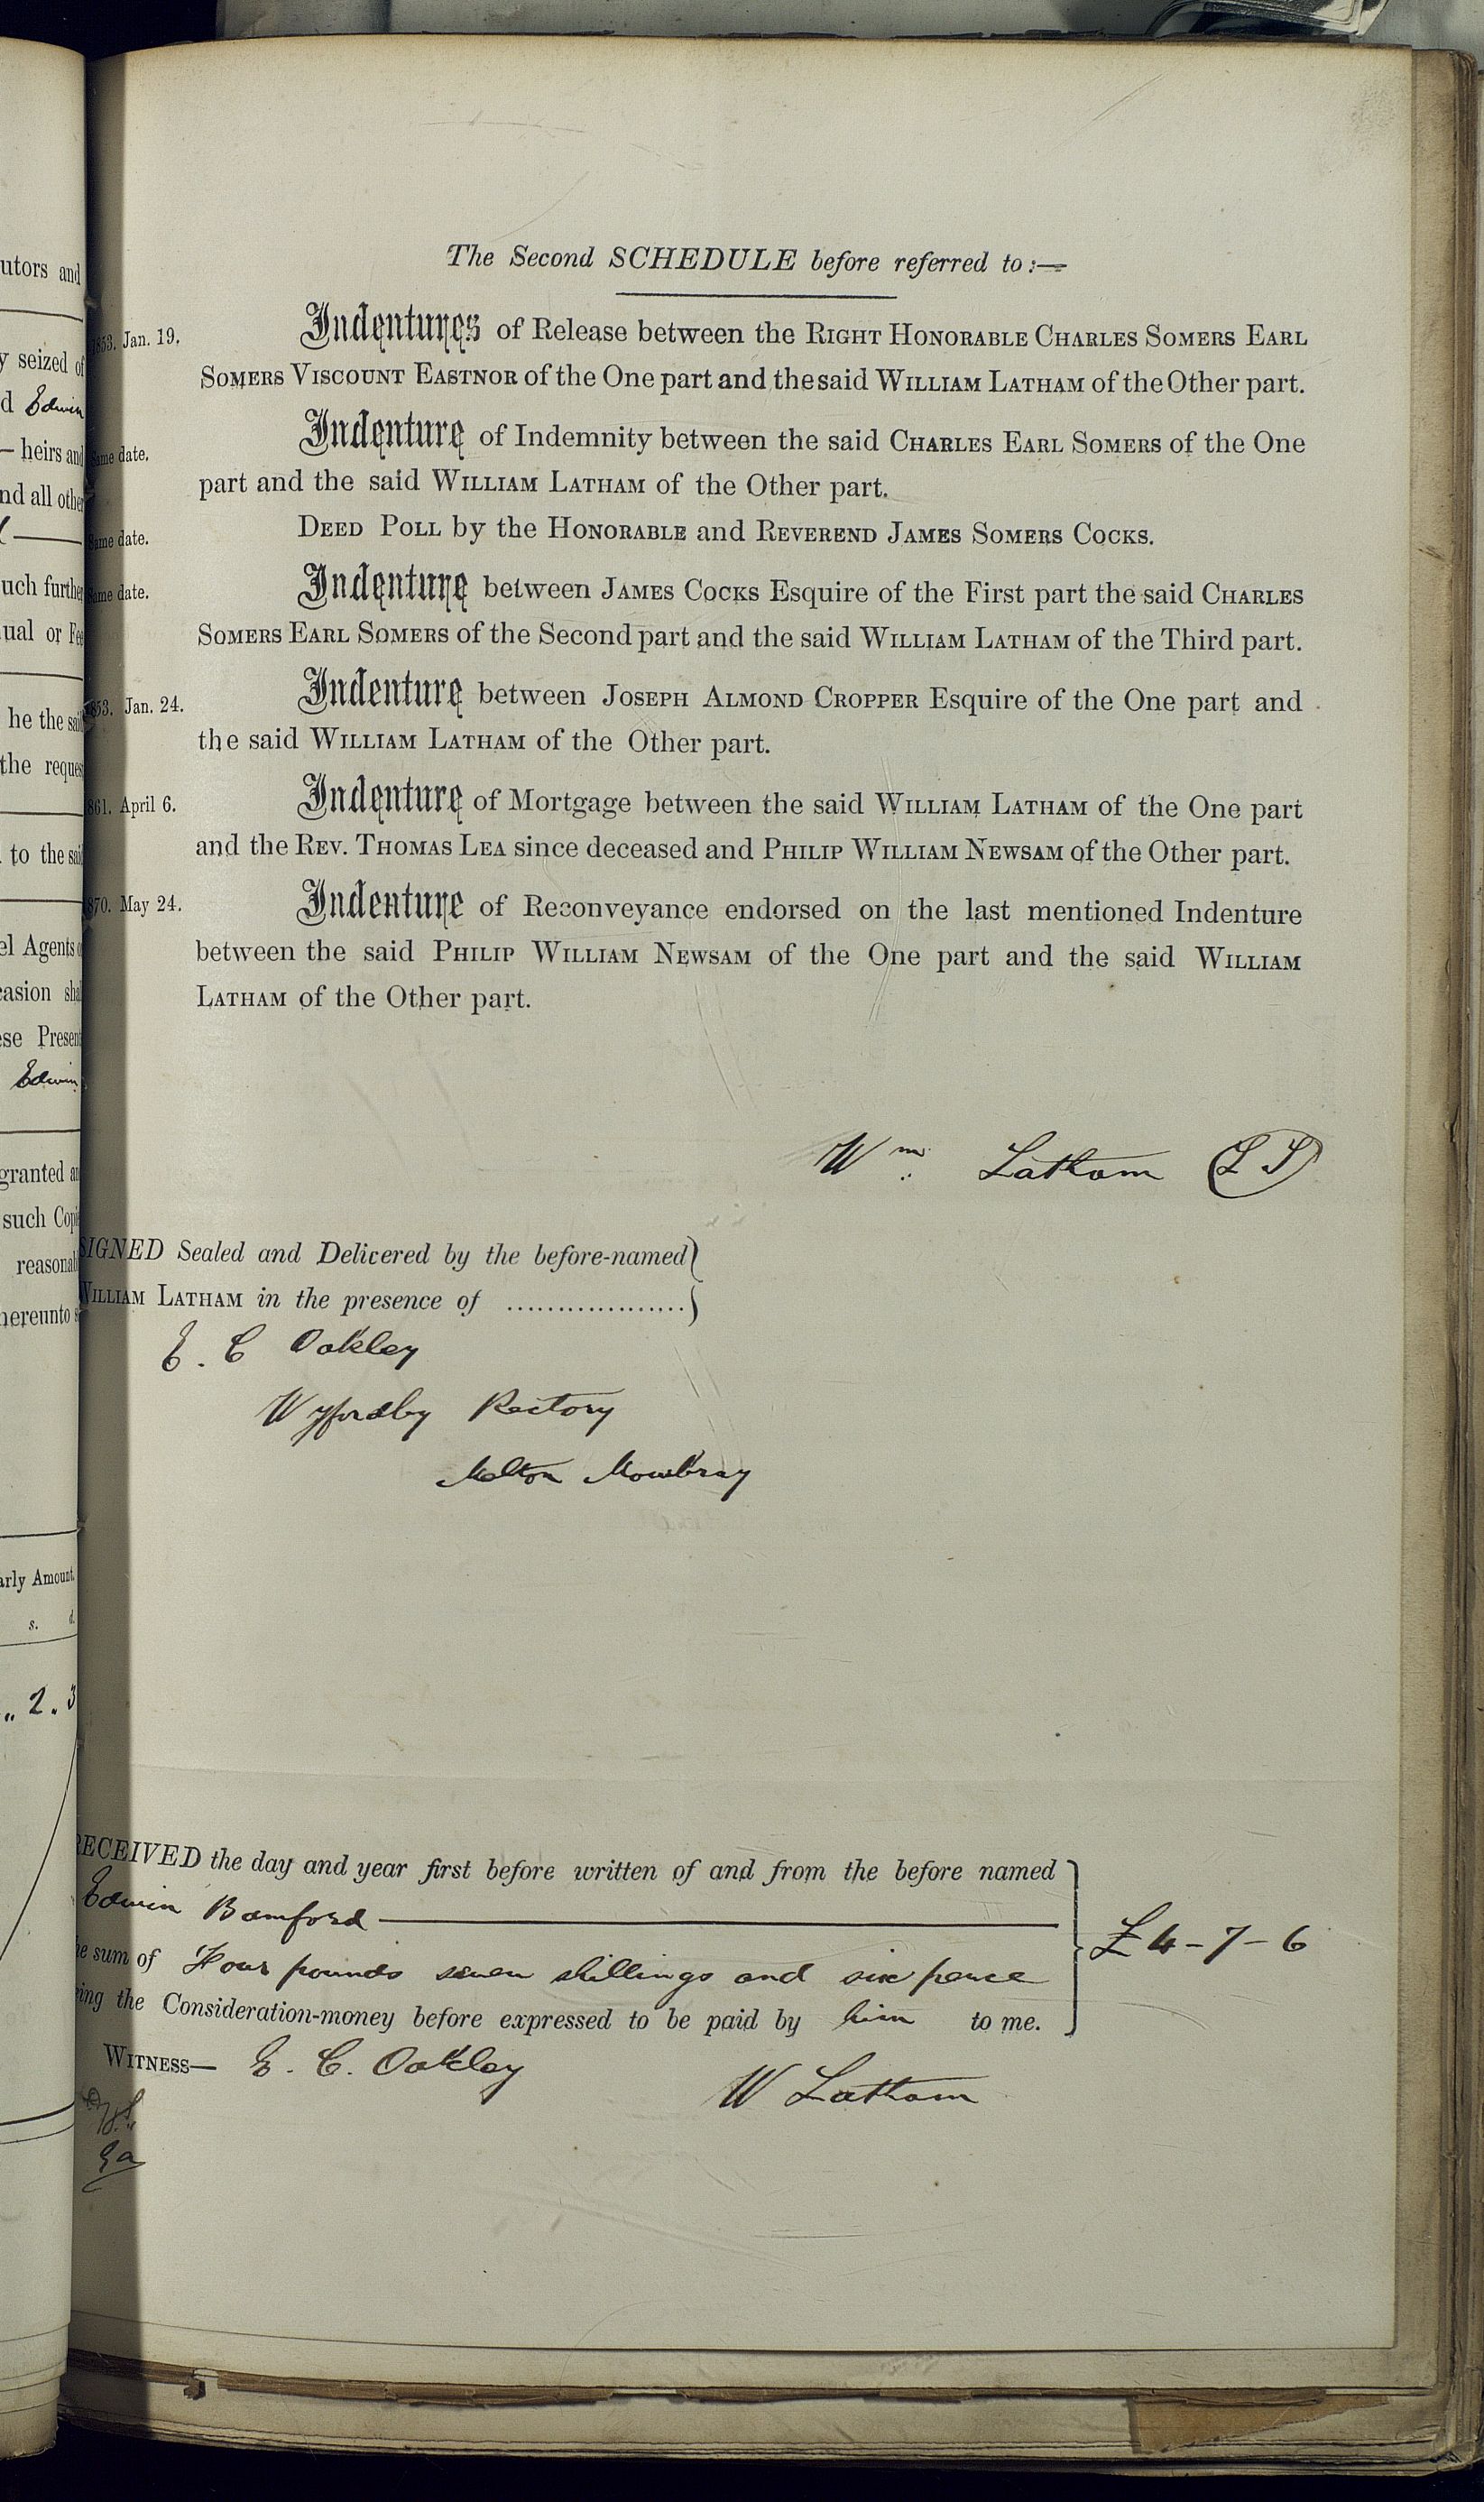 utors and
y seized of
d Edwin
— heirs and
nd all other
uch further
ual or Fee
he the said
the request
to the said
el Agents o
casion shal
ese Present
Edwin
granted an
such Copi
reasonabl
hereunto s
arly Amount.
s. d.
„ 2 „ 3
The Second SCHEDULE before referred to:—
1853. Jan. 19. Indentures of Release between the RIGHT HONORABLE CHARLES SOMERS EARL
SOMERS VISCOUNT EASTNOR of the One part and the said WILLIAM LATHAM of the Other part.
Same date. Indenture of Indemnity between the said CHARLES EARL SOMERS of the One
part and the said WILLIAM LATHAM of the Other part.
Same date. DEED POLL by the HONORABLE and REVEREND JAMES SOMERS COCKS.
Same date. Indenture between JAMES COCKS Esquire of the First part the said CHARLES
SOMERS EARL SOMERS of the Second part and the said WILLIAM LATHAM of the Third part.
1853. Jan. 24. Indenture between JOSEPH ALMOND CROPPER Esquire of the One part and
the said WILLIAM LATHAM of the Other part.
1861. April 6. Indenture of Mortgage between the said WILLIAM LATHAM of the One part
and the REV. THOMAS LEA since deceased and PHILIP WILLIAM NEWSAM of the Other part.
1870. May 24. Indenture of Reconveyance endorsed on the last mentioned Indenture
between the said PHILIP WILLIAM NEWSAM of the One part and the said WILLIAM
LATHAM of the Other part.
Wm. Latham (LS)
SIGNED Sealed and Delivered by the before-named
WILLIAM LATHAM in the presence of ..................
E. C Oakley
Wyfordby Rectory
Melton Mowbray
RECEIVED the day and year first before written of and from the before named
Edwin Bamford
he sum of Four pounds seven shillings and six pence £4-7-6
ing the Consideration-money before expressed to be paid by him to me.
WITNESS— E. C. Oakley
W Latham